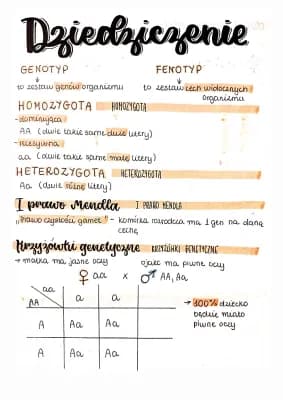 Dziedziczenie
GENOTYP FENOTYP
to zestaw genów organizmu to zestaw cech widocznych
organizmu
HOMOZYGOTA HOMOZYGOTA
- dominująca
AA (dwie takie same duże litery)
- recesywna
aa (dwie takie same małe litery)
HETEROZYGOTA HETEROZYGOTA
Aa (dwie różne litery)
I prawo Mendla I PRAWO MENDLA
"Prawo czystości gamet" - komórka rozrodcza ma 1 gen na daną
cechę
Krzyżówki genetyczne KRZYŻÓWKI GENETYCZNE
→ matka ma jasne oczy ojciec ma piwne oczy
♀ aa x ♂ AA, Aa
aa
AA a a
A Aa Aa
A Aa Aa
→ 100% dziecko
będzie miało
piwne oczy